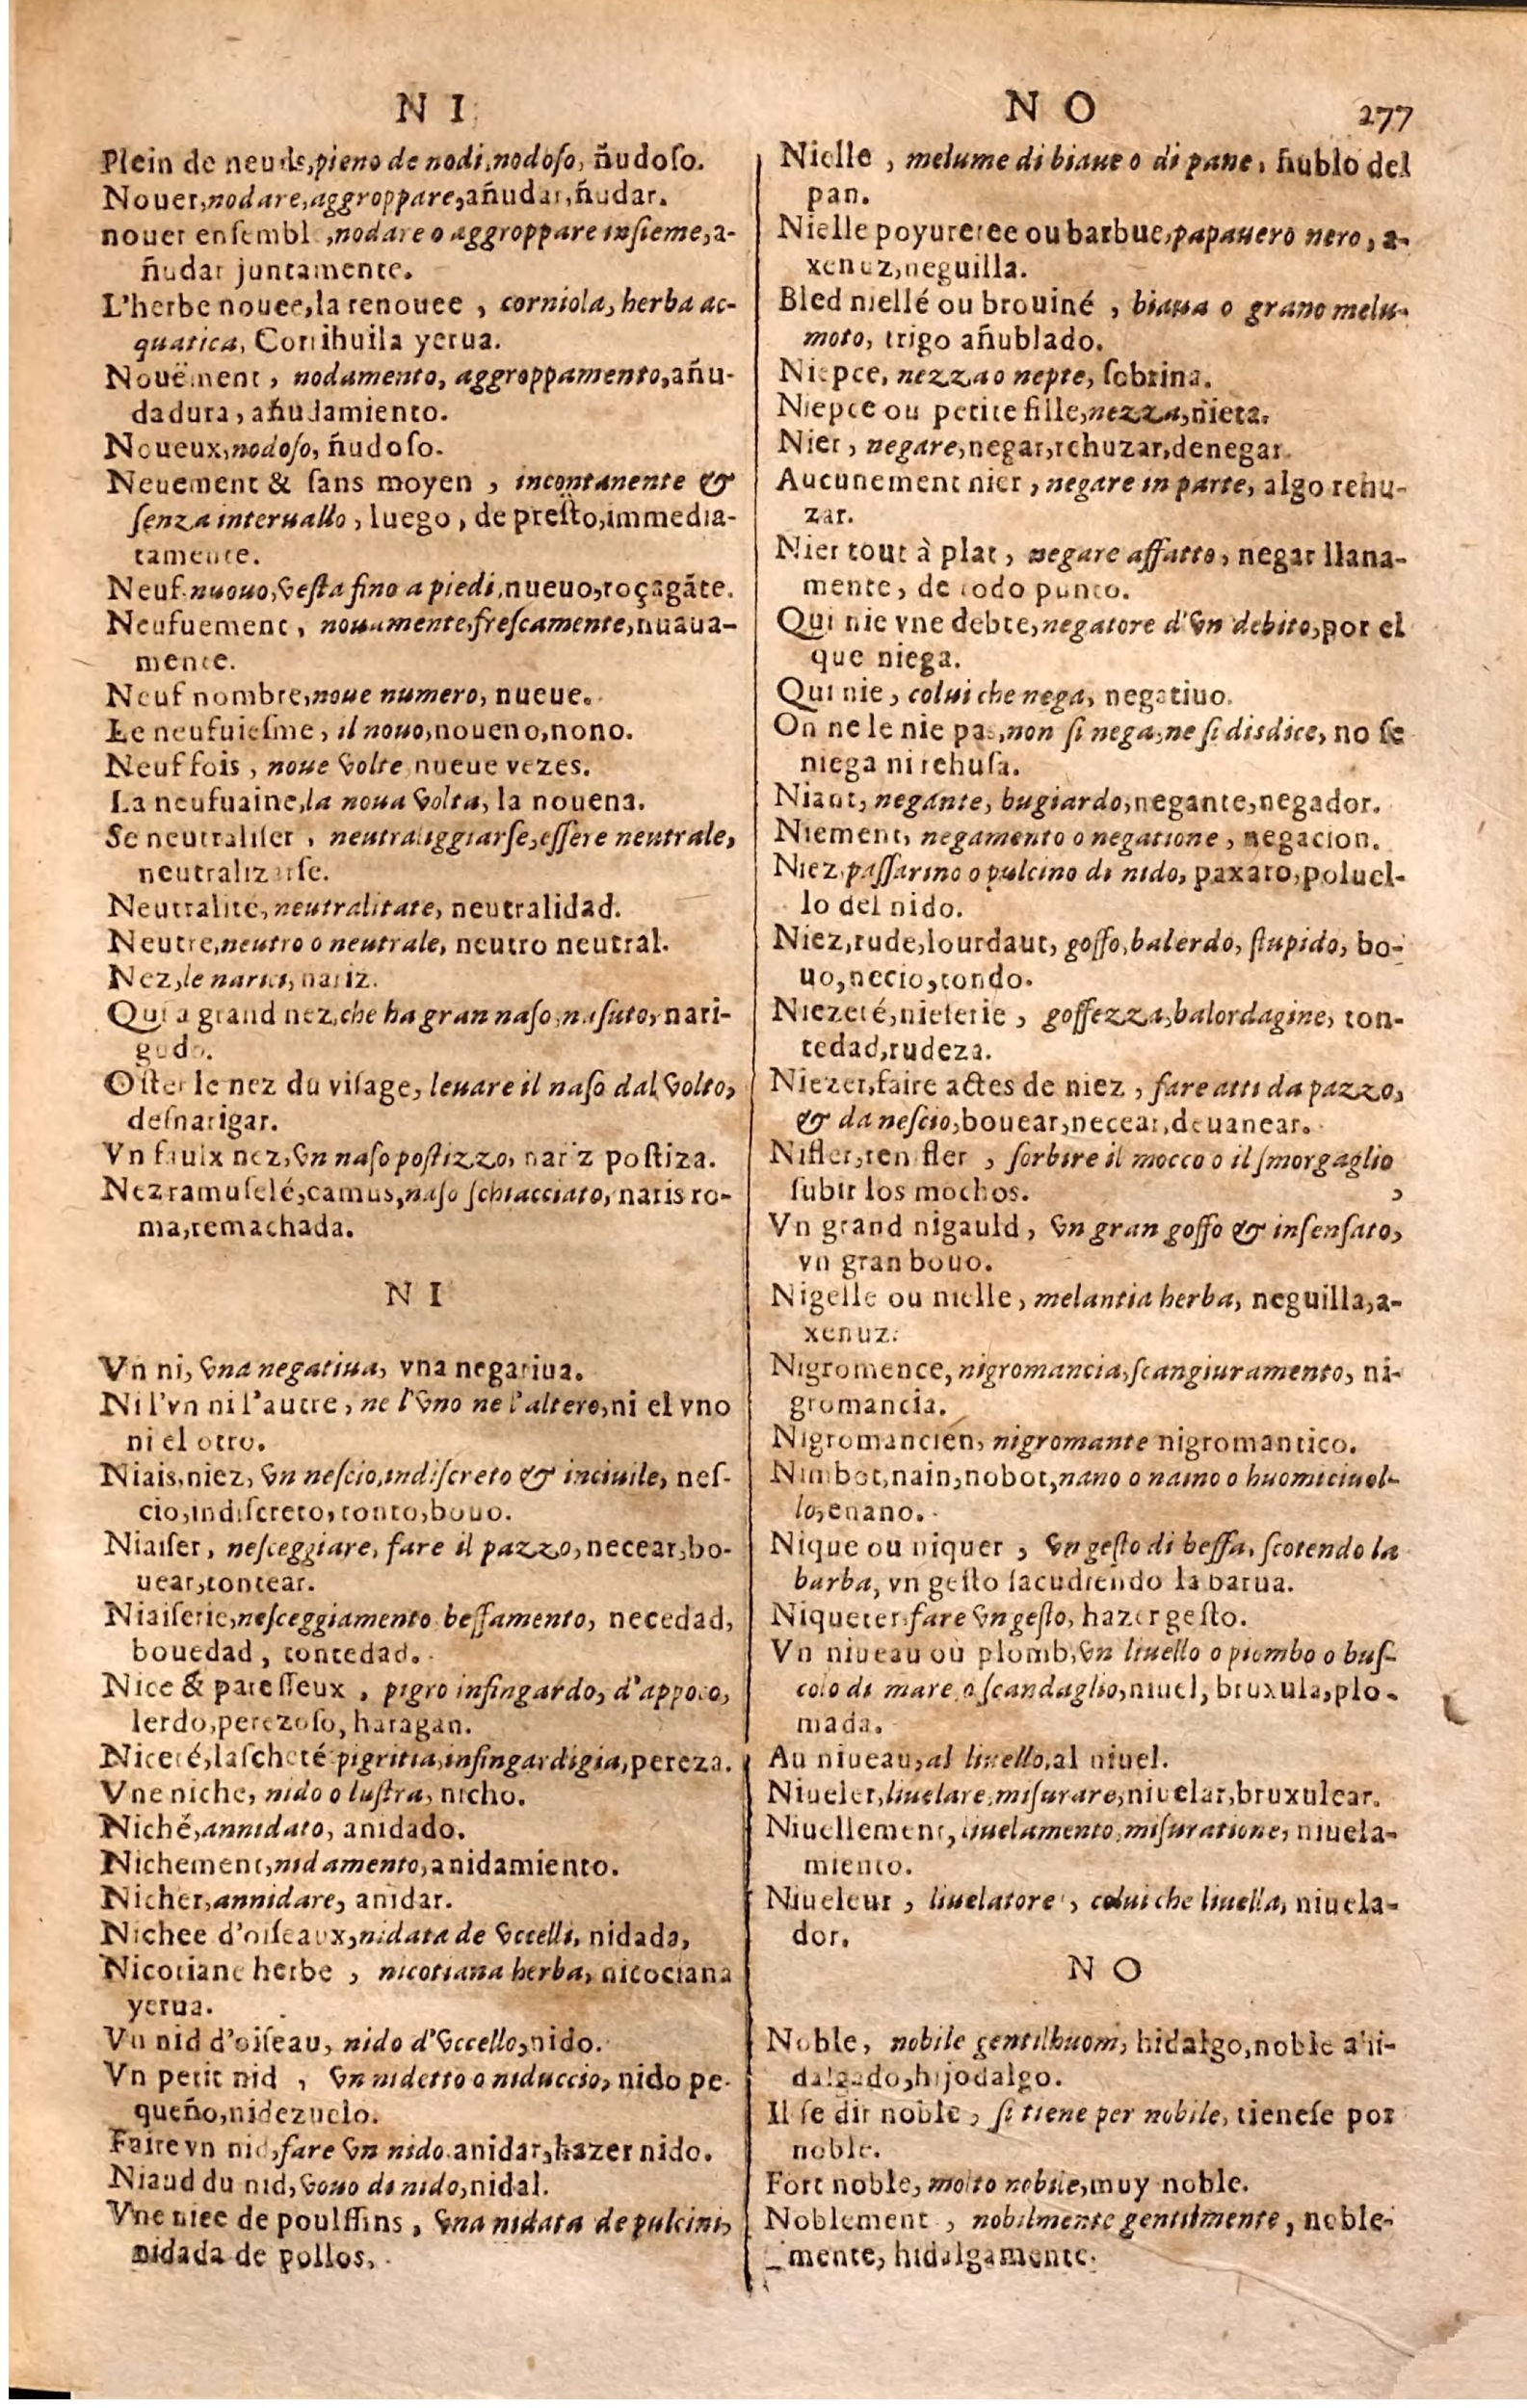 N I
Plein de neuds, pieno de nodi, nodoſo, ñudoſo.
Nouer, nodare, aggroppare, añudar, ñudar.
nouer enſembl, nodare o aggroppare inſieme, a-
ñudar juntamente.
L'herbe nouee, la renouee, corniola, herba ac-
quatica, Corrihuila yerua.
Nouëment, nodamento, aggroppamento, añu-
dadura, añudamiento.
Noueux, nodoſo, ñudoſo.
Neuement & ſans moyen, incontanente &
ſenza interuallo, luego, de preſto, immedia-
tamente.
Neuf. nuouo, veſta fino a piedi, nueuo, roçagãte.
Neufuement, nouamente, freſcamente, nuaua-
mente.
Neuf nombre, noue numero, nueue.
Le neufuieſme, il nouo, noueno, nono.
Neuf fois, noue volte, nueue vezes.
La neufuaine, la noua volta, la nouena.
Se neutraliſer, neutraliggiarſe, eſſere neutrale,
neutralizarſe.
Neutralité, neutralitate, neutralidad.
Neutre, neutro o neutrale, neutro neutral.
Nez, le narici, nariz.
Qui a grand nez, che ha gran naſo, naſuto, nari-
gudo.
Oſter le nez du viſage, leuare il naſo dal volto,
deſnarigar.
Vn faulx nez, vn naſo poſtizzo, nariz poſtiza.
Nez ramuſelé, camus, naſo ſchiacciato, naris ro-
ma, remachada.
N I
Vn ni, vna negatiua, vna negatiua.
Ni l'vn ni l'autre, ne l'vno ne l'altero, ni el vno
ni el otro.
Niais, niez, vn neſcio, indiſcreto & inciuile, neſ-
cio, indiſcreto, tonto, bouo.
Niaiſer, neſceggiare, fare il pazzo, necear, bo-
uear, tontear.
Niaiſerie, neſceggiamento beffamento, necedad,
bouedad, tontedad.
Nice & pareſſeux, pigro inſingardo, d'appoco,
lerdo, perezoſo, haragan.
Niceté, laſcheté pigritia, inſingardigia, pereza.
Vne niche, nido o luſtra, nicho.
Niché, annidato, anidado.
Nichement, nidamento, anidamiento.
Nicher, annidare, anidar.
Nichee d'oiſeaux, nidata de vccelli, nidada,
Nicotiane herbe, nicotiana herba, nicociana
yerua.
Vn nid d'oiſeau, nido d'vccello, nido.
Vn petit nid, vn nidetto o niduccio, nido pe-
queño, nidezuelo.
Faire vn nid, fare vn nido. anidar, hazer nido.
Niaud du nid, vouo di nido, nidal.
Vne niee de poulſſins, vna nidata de pulcini,
nidada de pollos.
N O 277
Nielle, melume di biaue o di pane, ñublo del
pan.
Nielle poyureree ou barbue, papauero nero, a-
xenuz, neguilla.
Bled niellé ou brouiné, biaua o grano melu-
moto, trigo añublado.
Niepce, nezza o nepte, ſobrina.
Niepce ou petite fille, nezza, nieta.
Nier, negare, negar, rehuzar, denegar.
Aucunement nier, negare in parte, algo rehu-
zar.
Nier tout à plat, negare affatto, negar llana-
mente, de todo punto.
Qui nie vne debte, negatore d'vn debito, por el
que niega.
Qui nie, colui che nega, negatiuo.
On ne le nie pas, non ſi nega, ne ſi disdice, no ſe
niega ni rehuſa.
Niant, negante, bugiardo, negante, negador.
Niement, negamento o negatione, negacion.
Niez, paſſarino o pulcino di nido, paxaro, poluel-
lo del nido.
Niez, rude, lourdaut, goffo, balerdo, ſtupido, bo-
uo, necio, tondo.
Niezeté, nieſerie, goffezza, balordagine, ton-
tedad, rudeza.
Niezer, faire actes de niez, fare atti da pazzo,
& da neſcio, bouear, necear, deuanear.
Nifler, renifler, ſorbire il mocco o il ſmorgaglio
ſubir los mochos. ,
Vn grand nigauld, vn gran goffo & inſenſato,
vn gran bouo.
Nigelle ou nielle, melantia herba, neguilla, a-
xenuz.
Nigromence, nigromancia, ſcangiuramento, ni-
gromancia.
Nigromancien, nigromante nigromantico.
Nimbot, nain, nobot, nano o naino o huomiciuel-
lo, enano.
Nique ou niquer, vn geſto di beffa, ſcotendo la
barba, vn geſto ſacudiendo la barua.
Niqueter, fare vn geſto, hazer geſto.
Vn niueau ou plomb, vn liuello o piombo o buſ-
colo di mare o ſcandaglio, niuel, bruxula, plo-
mada.
Au niueau, al liuello, al niuel.
Niueler, liuelare, miſurare, niuelar, bruxulear.
Niuellement, liuelamento, miſuratione, niuela-
miento.
Niueleur, liuelatore, colui che liuella, niuela-
dor.
N O
Noble, nobile gentilhuom, hidalgo, noble ahi-
dalgado, hijodalgo.
Il ſe dit noble, ſi tiene per nobile, tieneſe por
noble.
Fort noble, molto nobile, muy noble.
Noblement, nobilmente gentilmente, noble-
mente, hidalgamente.